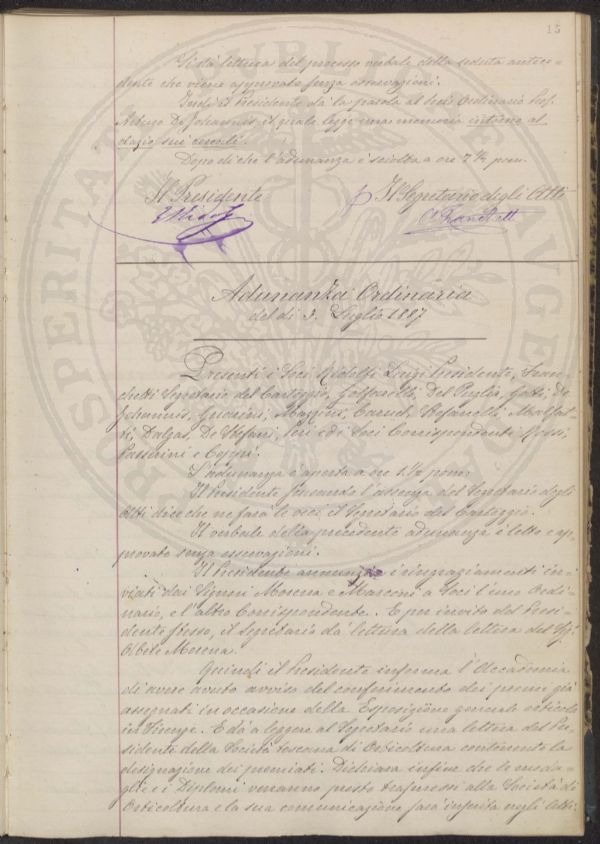 15
Si dà lettura del processo verbale della seduta antece-
dente che viene approvato senza osservazioni.
Indi il Presidente dà la parola al Socio Ordinario Prof.
Arturo De Johannis il quale legge una memoria intorno al
dazio sui cereali.
Dopo di che l'adunanza è sciolta a ore 7½ pom.
Il Presidente
Il Segretario degli Atti
L Ridolfi
Adunanza Ordinaria
del dì 3. Luglio 1887
Presenti i Soci Ridolfi Luigi Presidente, Fran-
chetti Segretario del Carteggio, Del Puglia, Gotti, De
Johannis, Guarini, Mazzini, Caruel, Stefanelli,
Dalgas, De Stefani, ed i Soci Corrispondenti Rossi,
Passerini e Coppi.
L'adunanza è aperta a ore 1½ pom.
Il Presidente l'assenza del Segretario degli
Atti dice che ne farà le veci il Segretario del Carteggio.
Il verbale della precedente adunanza è letto e ap-
provato senza osservazioni.
Il Presidente annunzia i ringraziamenti in-
viati dai Signori Morena e Marconi a Soci l'uno Ordi-
nario, e l'altro Corrispondente. E per invito del Presi-
dente stesso, il Segretario dà lettura della lettera del Sig.
Abate Morena.
Quindi il Presidente informa l'Accademia
di avere avuto avviso del conferimento dei premi già
assegnati in occasione della Esposizione generale orticola
in Firenze. E dà a leggere al Segretario una lettera del Pre-
sidente della Società toscana di Orticultura contenente la
designazione dei premiati. Dichiara infine che le meda-
glie e i Diplomi verranno presto trasmessi alla Società di
Orticultura e la sua comunicazione sarà inserita negli Atti.
PROSPERITATI PUBLICAE AUGENDAE